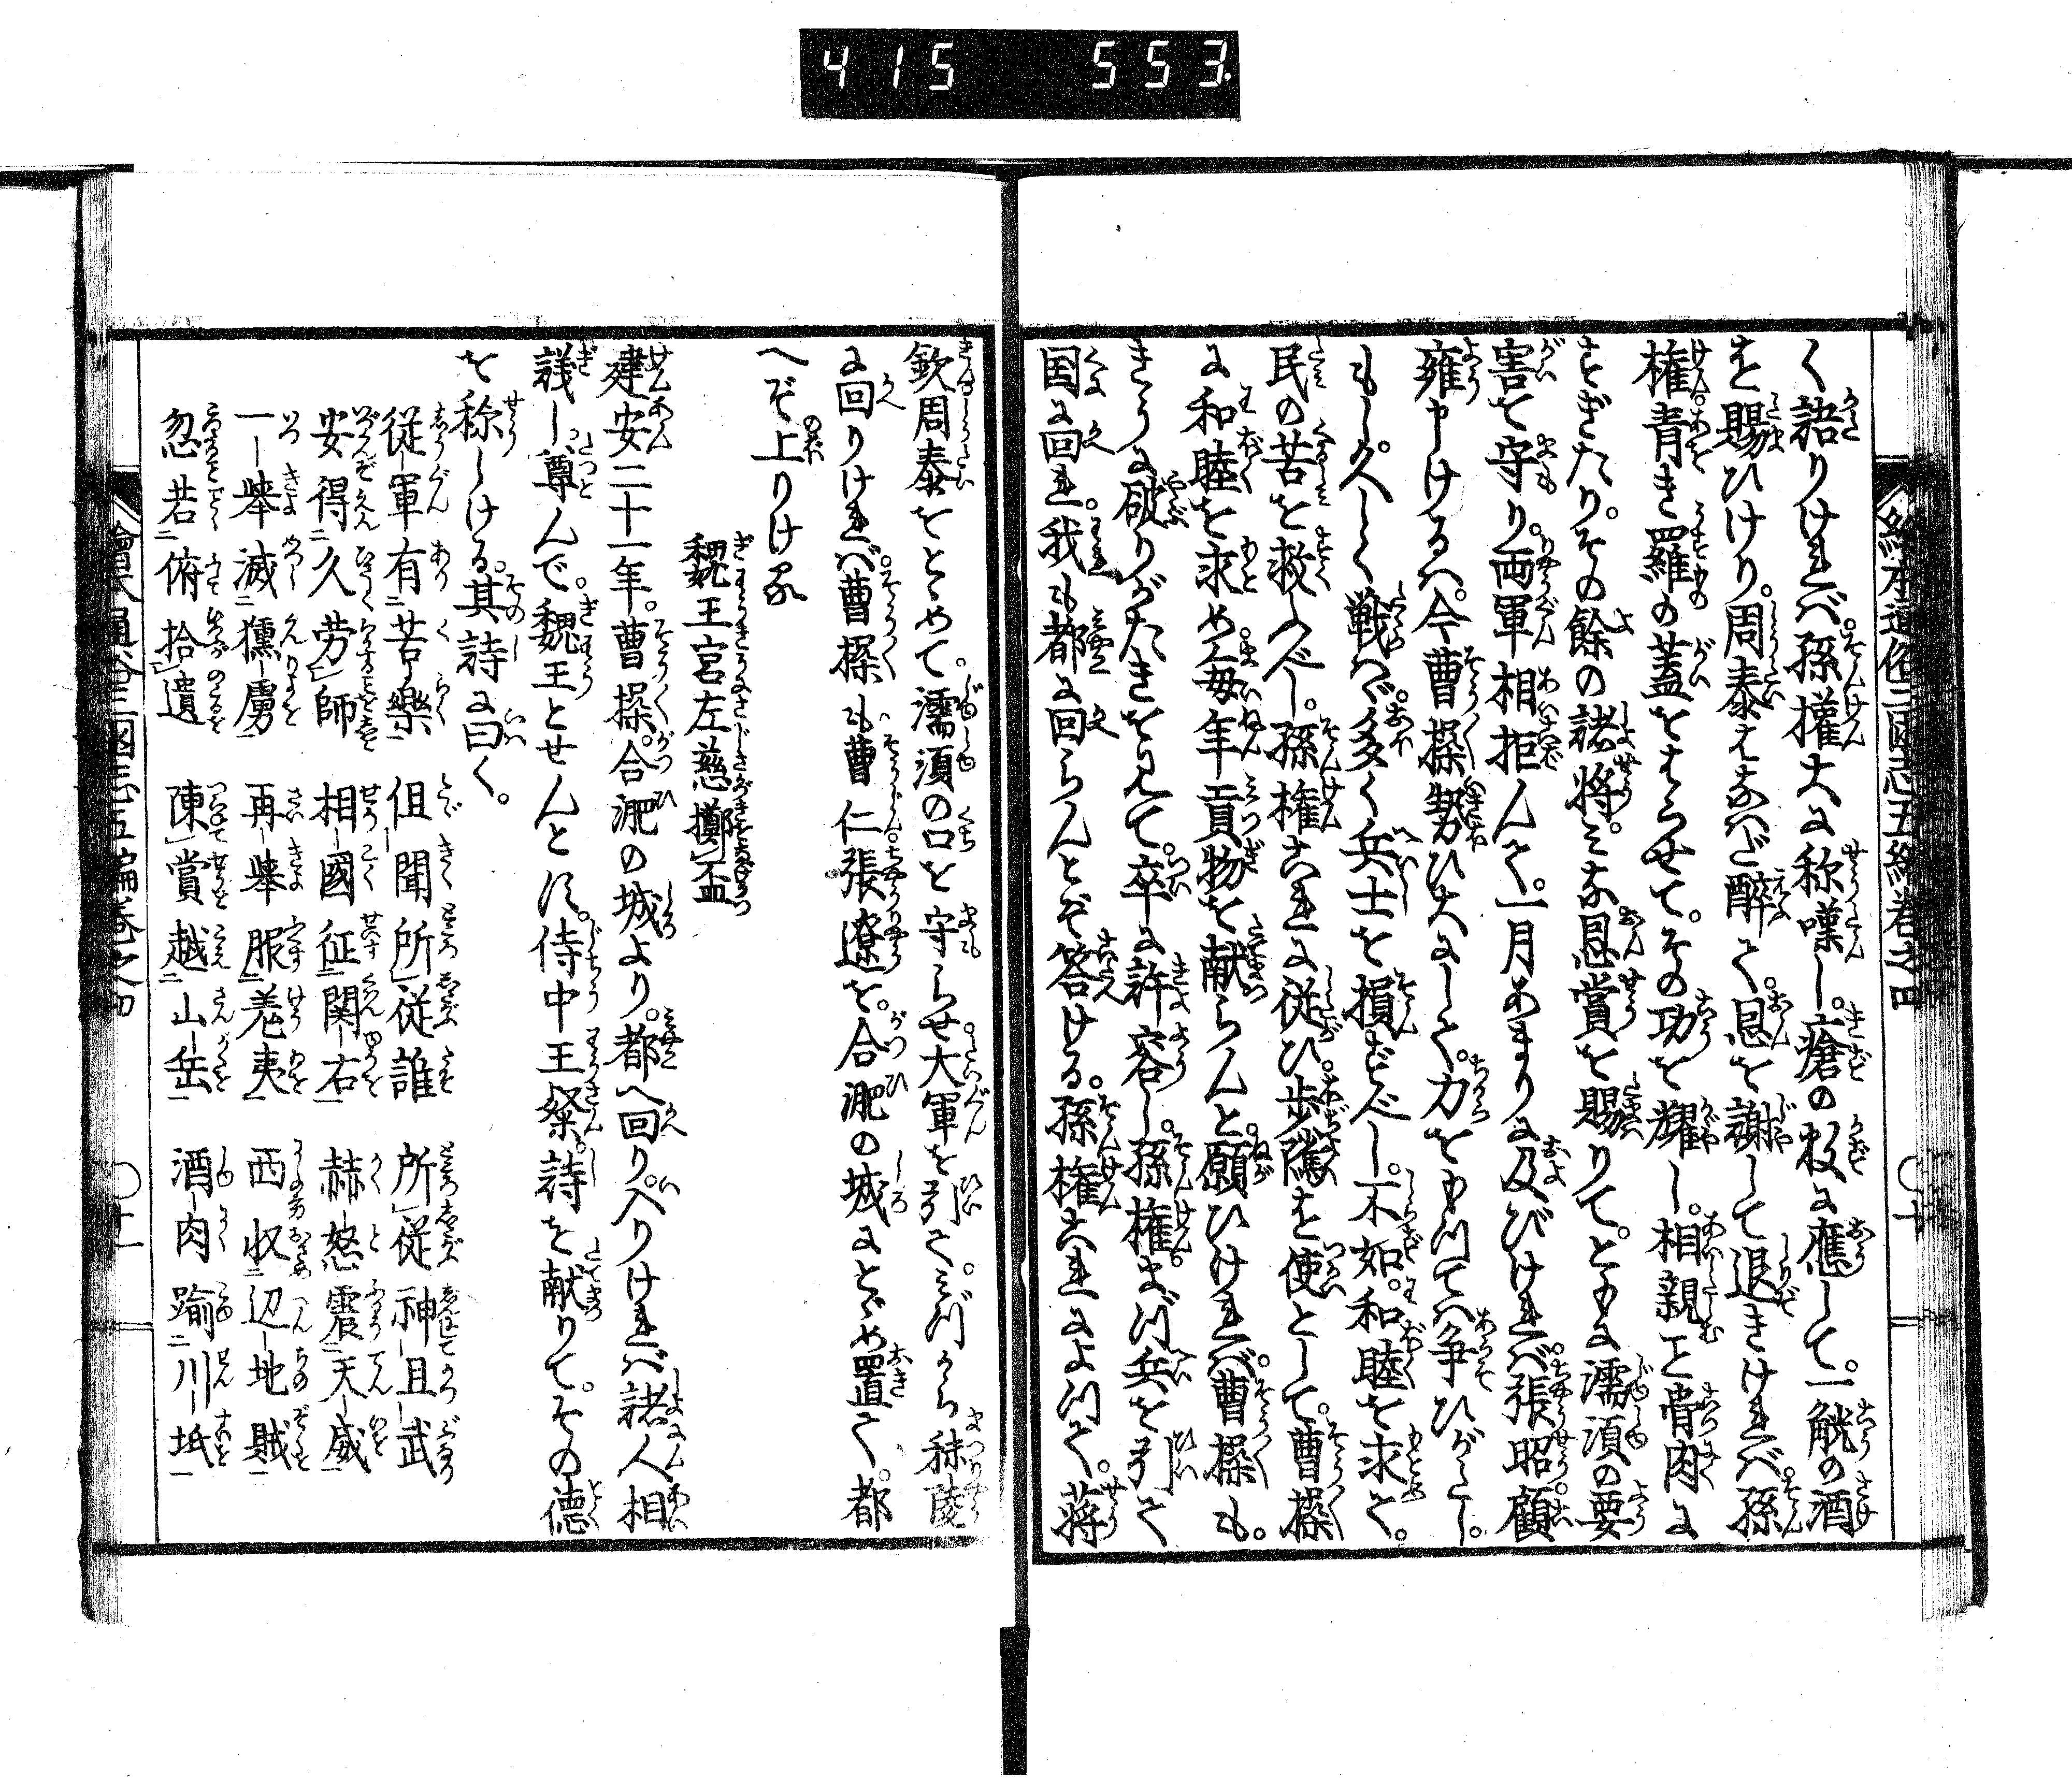 415 553
く語りけれバ。孫權大に称嘆し。瘡の数に應して。一觥の酒
を賜ひけり。周泰こらへず醉て。恩を謝して退きけれバ。孫
権。青き羅の蓋をはらせて。その功を耀し。相親こと骨肉に
すぎたり。その餘の諸将。ミな恩賞を賜りて。ともに濡須の要
害を守り。両軍相拒んて。一月あまりに及びけれバ。張昭。顧
雍申しけるハ。今曹操勢ひ大にして。力をもつてハ争ひがたし。
もし久しく戦ハヾ。多く兵士を損ずべし。不如。和睦を求て。
民の苦を救ふべし。孫権これに従ひ。歩隲を使として。曹操
に和睦を求め。毎年貢物を献らんと。願ひけれバ。曹操も。
きうに破りがたきを見て。卒に許容し。孫権。まづ兵を引て
国に回れ。我も都に回らんとぞ答ける。孫権これによつて。蒋
欽周泰をとゞめて。濡須の口を守らせ。大軍を引て。ミづから秣陵
に回りけれバ。曹操も。曹仁。張遼を。合淝の城にとゞめ置て。都
へぞ上りける
魏王宮左慈擲盃
建安二十一年。曹操。合淝の城より。都へ回り。入りけれバ諸人相
議し。尊んで。魏王とせんとす。侍中王粲。詩を献りて。その徳
を称しける。其詩に曰く。
従軍有苦樂 但聞所従誰 所従神且武
安得久労師 相國征関右 赫怒震天威
一擧滅獯虜 再擧服羌夷 西収辺地賊
忽若俯拾遺 陳賞越山岳 酒肉踰川坻
繪本通俗三國志五編巻之四 〇十
繪本通俗三國志五編巻之四 〇十一